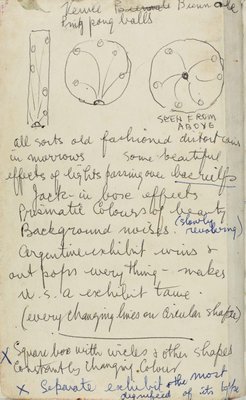 Venice Biennale
Ping pong balls
SEEN FROM
ABOVE
all sorts old fashioned distortions
in mirrors some beautiful
effects of lights passing over
Jack-in box effects
Prismatic Colours of beauty
Background noises. (slowly
revolving)
Argentine exhibit wins &
out pops everything - makes
U.S.A exhibit tame.
(every changing lines on circular shapes)
x Square box with circles & other shapes
constantly changing colour
x Separate exhibit & the most
dignified of its